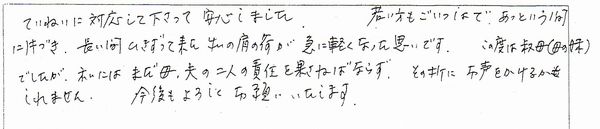 ていねいに対応して下さって 安心しました。 若い方もごいっしょで、あっという間
に片づき、長い間ひきずって来た 私の肩の荷が 急に軽くなった思いです。 この度は叔母(母の妹)
でしたが、私には まだ母、夫の二人の責任を果さねばならず、 その折に お声をかけるかも
しれません。 今後もよろしくお願いいたします。